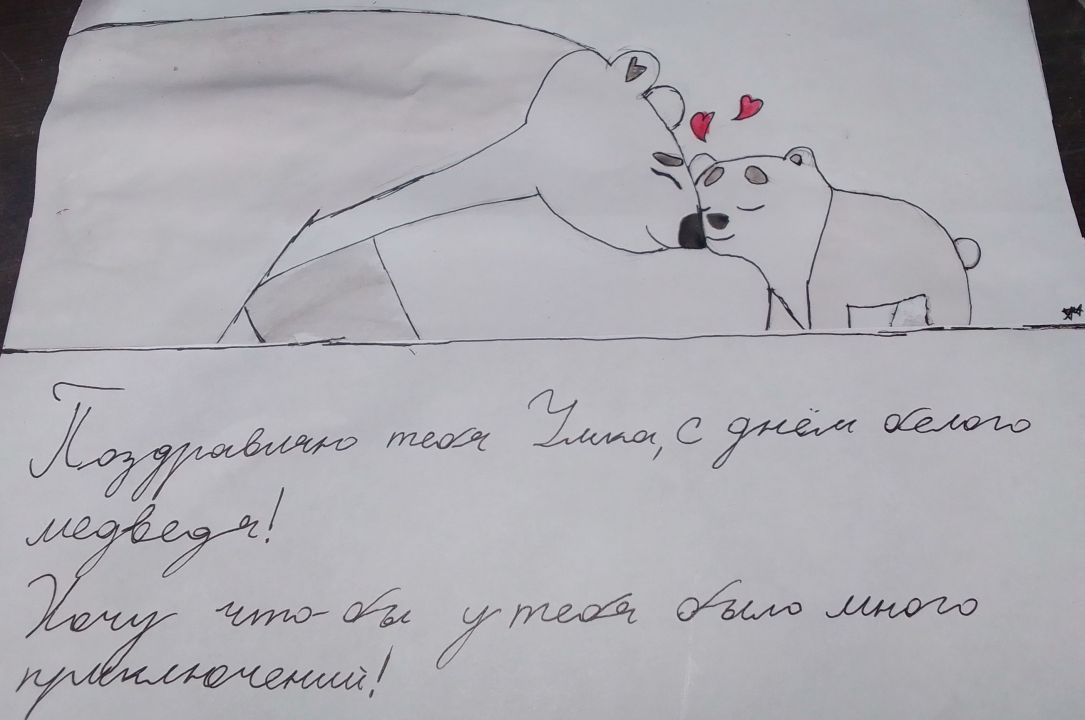 Поздравляю тебя Умка, с днём белого
медведя!
Хочу что-бы у тебя было много
приключений!